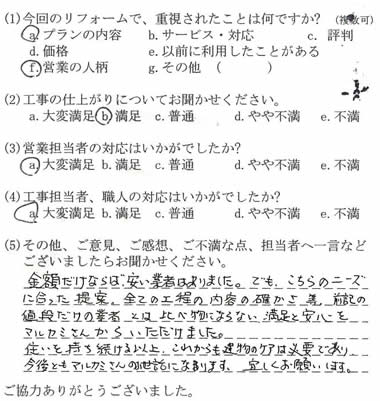 (1)今回のリフォームで、重視されたことは何ですか? (複数可)
a.プランの内容 b.サービス・対応 c. 評判
d.価格 e.以前に利用したことがある
f.営業の人柄 g.その他 ( )
(2)工事の仕上がりについてお聞かせください。
a.大変満足 b.満足 c.普通 d.やや不満 e.不満
(3)営業担当者の対応はいかがでしたか?
a.大変満足 b.満足 c.普通 d.やや不満 e.不満
(4)工事担当者、職人の対応はいかがでしたか?
a.大変満足 b.満足 c.普通 d.やや不満 e.不満
(5)その他、ご意見、ご感想、ご不満な点、担当者へ一言など
ございましたらお聞かせください。
金額だけならば、安い業者はありました。でも、こちらのニーズ
に合った提案、全ての工程の内容の確かさ等、前記の
値段だけの業者とは比べ物にならない満足と安心を
マルカミさんからいただけました。
住いを持ち続ける以上、これからも建物のケアは必要であり、
今後ともマルカミさんのお世話になります。宜しくお願いします。
ご協力ありがとうございました。